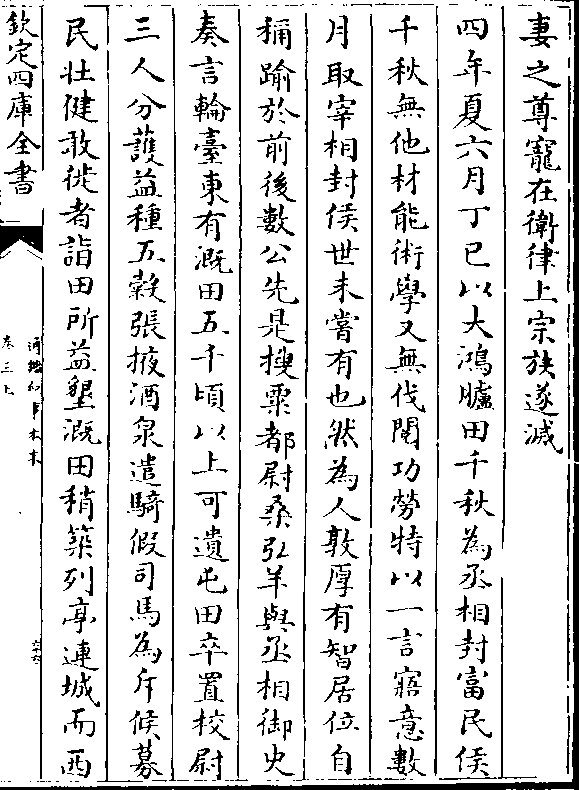 妻之尊寵在衛律上宗族遂滅
四年夏六月丁巳以大鴻臚田千秋為丞相封富民侯
千秋無他材能術學又無伐閱功勞特以一言寤意數
月取宰相封侯世未嘗有也然為人敦厚有智居位自
稱踰於前後數公先是搜粟都尉桑弘羊與丞相御史
奏言輪臺東有溉田五千頃以上可遣屯田卒置校尉
三人分護益種五穀張掖酒泉遣騎假司馬為斥候募
民壯健敢徙者詣田所益墾溉田稍築列亭連城而西
欽定四庫全書
通鑑紀事本末
卷三上